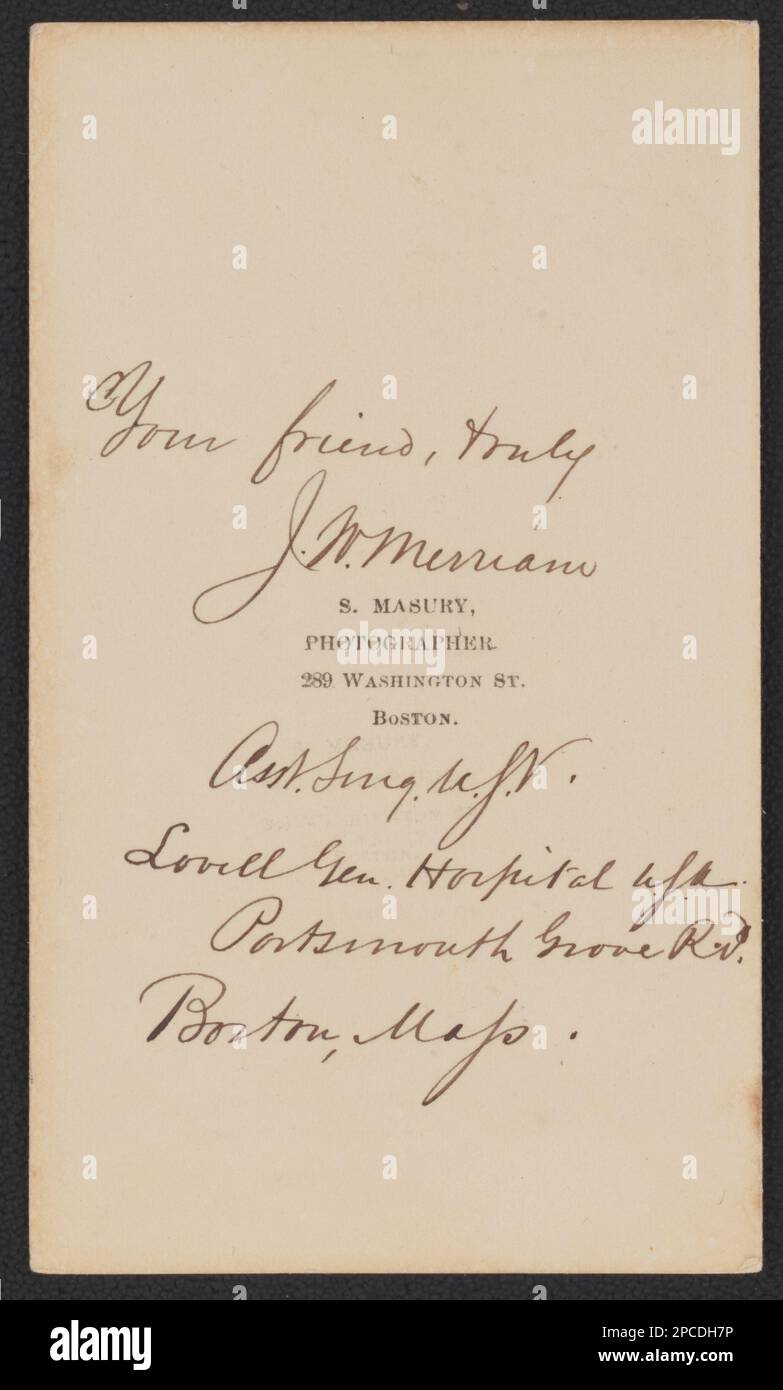 Your friend, truly
J. W. Merriam
S. MASURY,
PHOTOGRAPHER.
289 WASHINGTON ST.
BOSTON.
Asst. Surg. U.S.V.
Lovell Gen. Hospital U.S.A.
Portsmouth Grove R.I.
Boston, Mass.
alamy
a
alamy
Image ID: 2PCDH7P
www.alamy.com